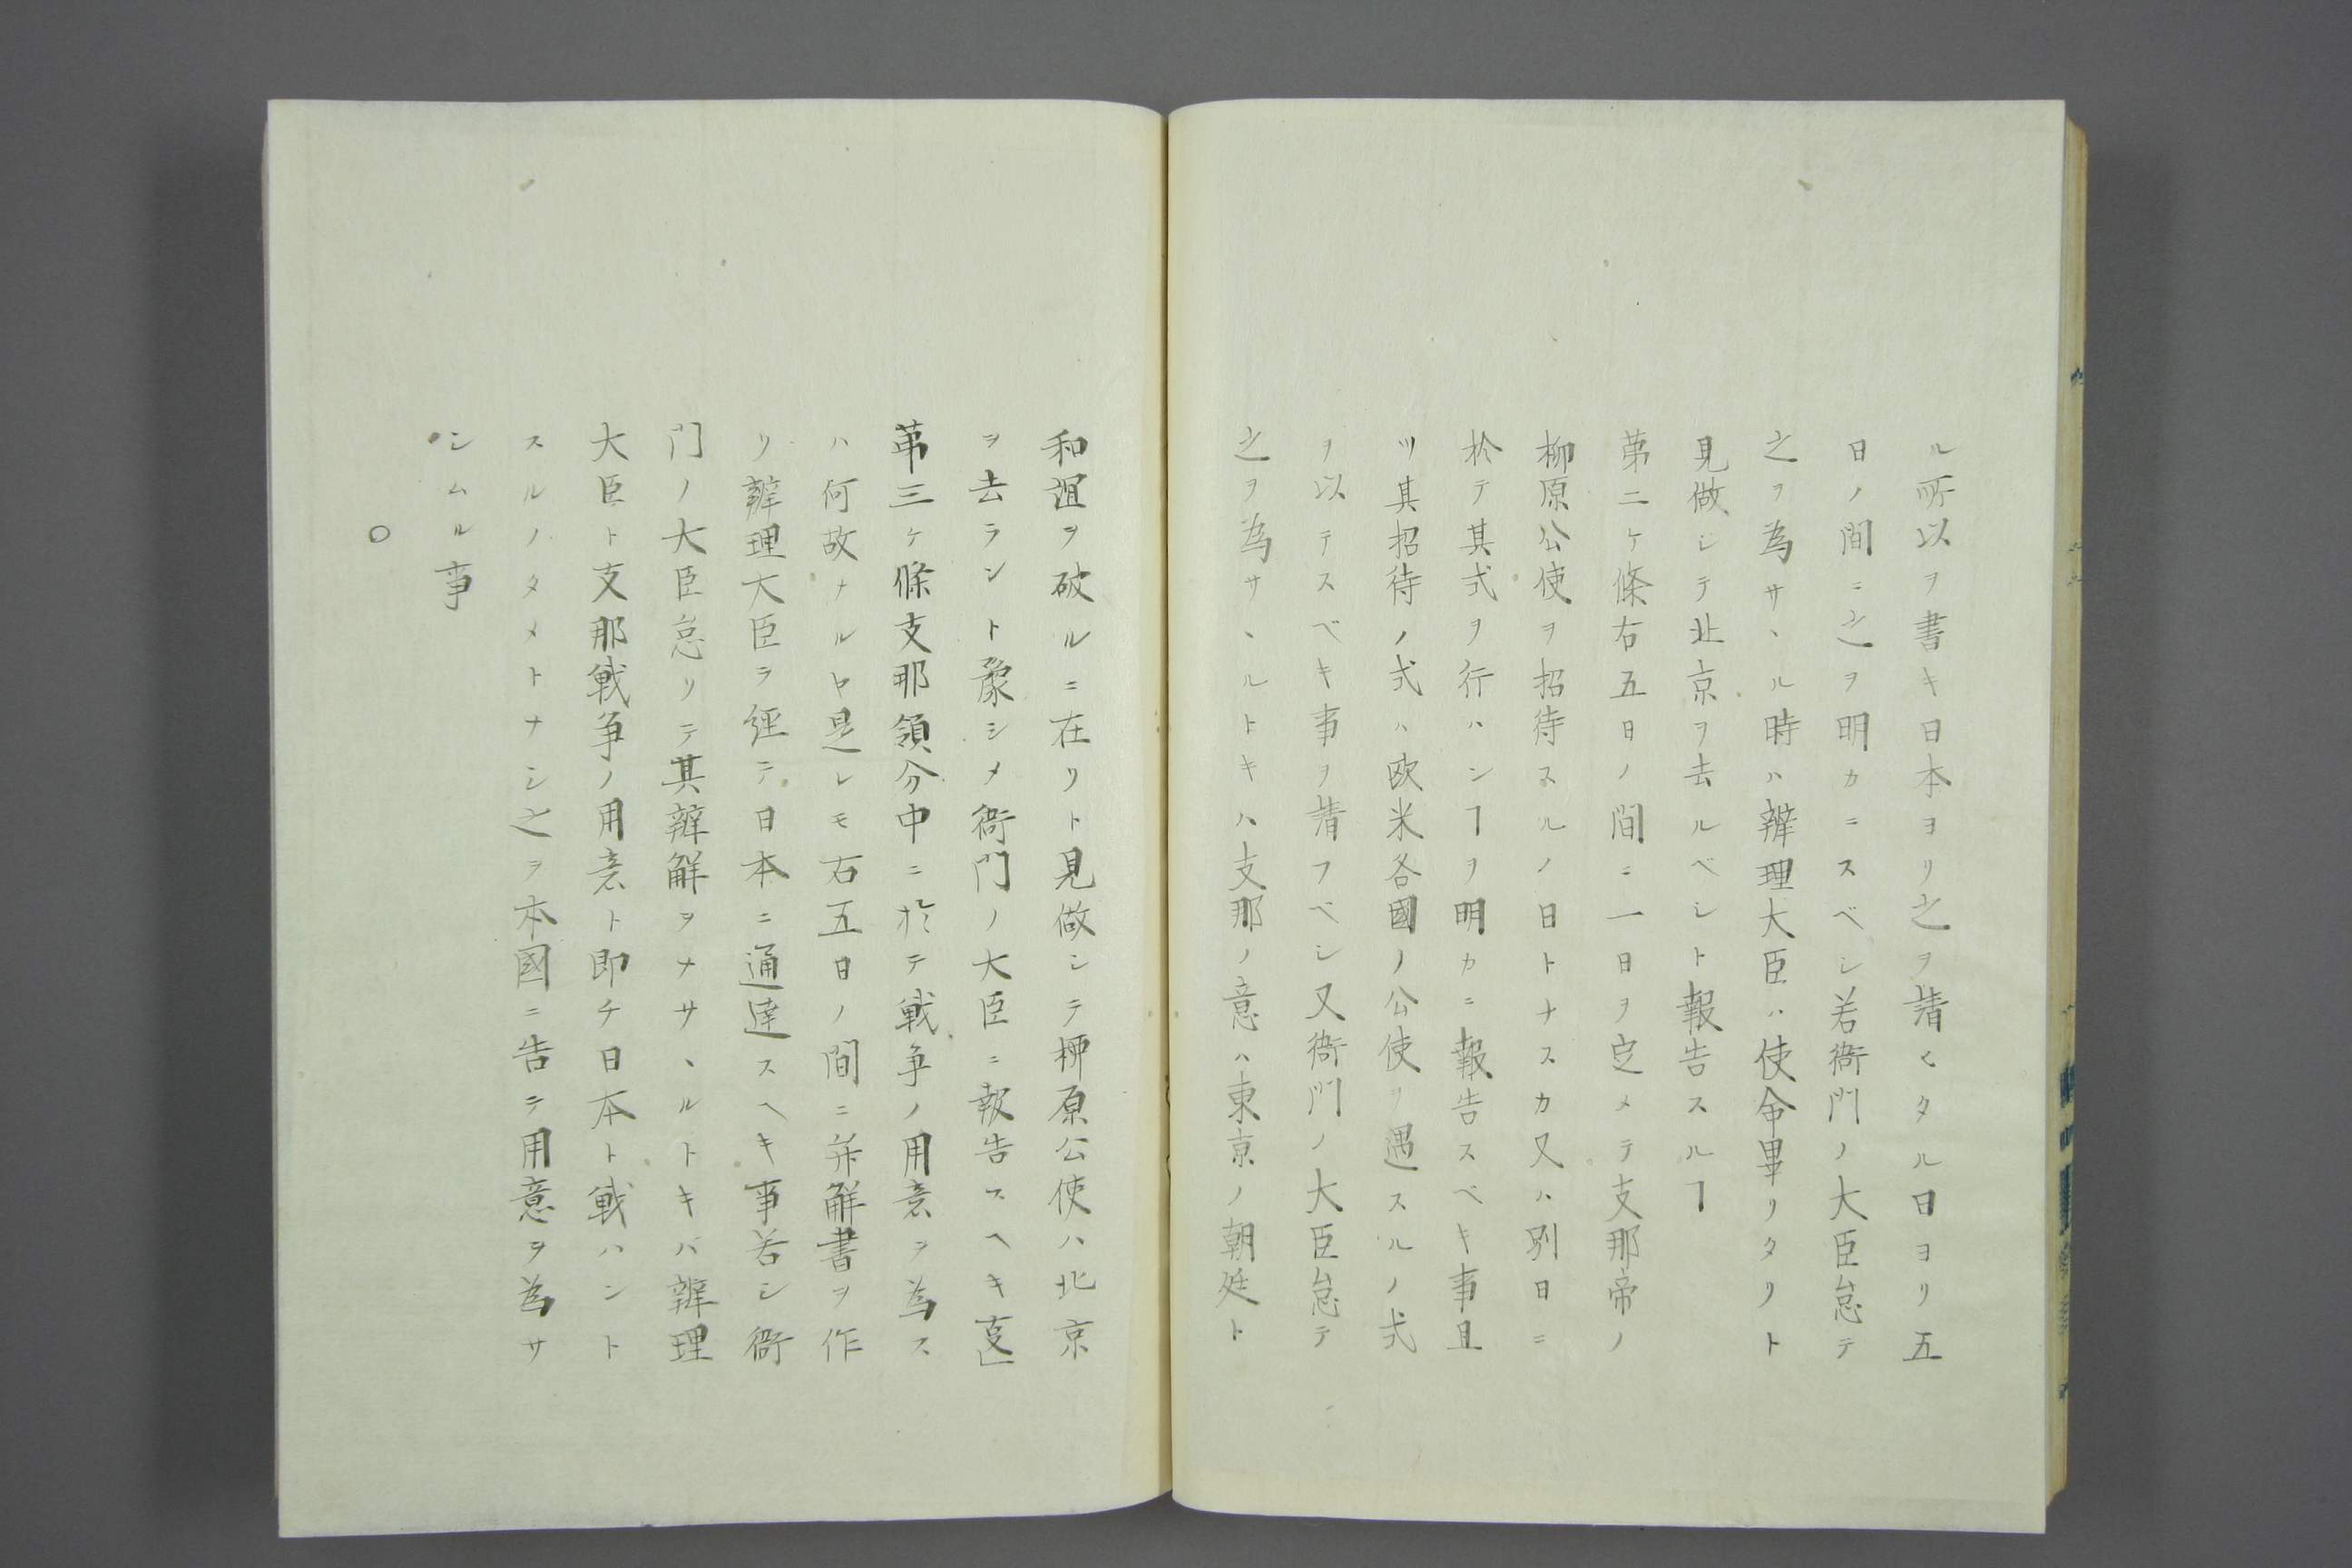 ル所以ヲ書キ日本ヨリ之ヲ請ヒタル日ヨリ五
日ノ間ニ之ヲ明カニスベシ若衙門ノ大臣怠テ
之ヲ為サヽル時ハ辨理大臣ハ使命畢リタリト
見做シテ北京ヲ去ルベシト報告スルヿ
第二ケ條右五日ノ間ニ一日ヲ定メテ支那帝ノ
柳原公使ヲ招待スルノ日トナスカ又ハ別日ニ
於テ其式ヲ行ハンヿヲ明カニ報告スベキ事且
ツ其招待ノ式ハ欧米各國ノ公使ヲ遇スルノ式
ヲ以テスベキ事ヲ請フベシ又衙門ノ大臣怠テ
之ヲ為サヽルトキハ支那ノ意ハ東京ノ朝廷ト
和誼ヲ破ルニ在リト見做シテ柳原公使ハ北京
ヲ去ラント豫シメ衙門ノ大臣ニ報告スヘキ叓」
第三ケ條支那領分中ニ於テ戦争ノ用意ヲ為ス
ハ何故ナルヤ是レモ右五日ノ間ニ弁解書ヲ作
リ辨理大臣ヲ經テ日本ニ通達スヘキ事若シ衙
门ノ大臣怠リテ其辨解ヲナサヽルトキバ辨理
大臣ト支那戦争ノ用意ト即チ日本ト戦ハント
スルノタメトナシ之ヲ本國ニ告テ用意ヲ為サ
シムル事
〇